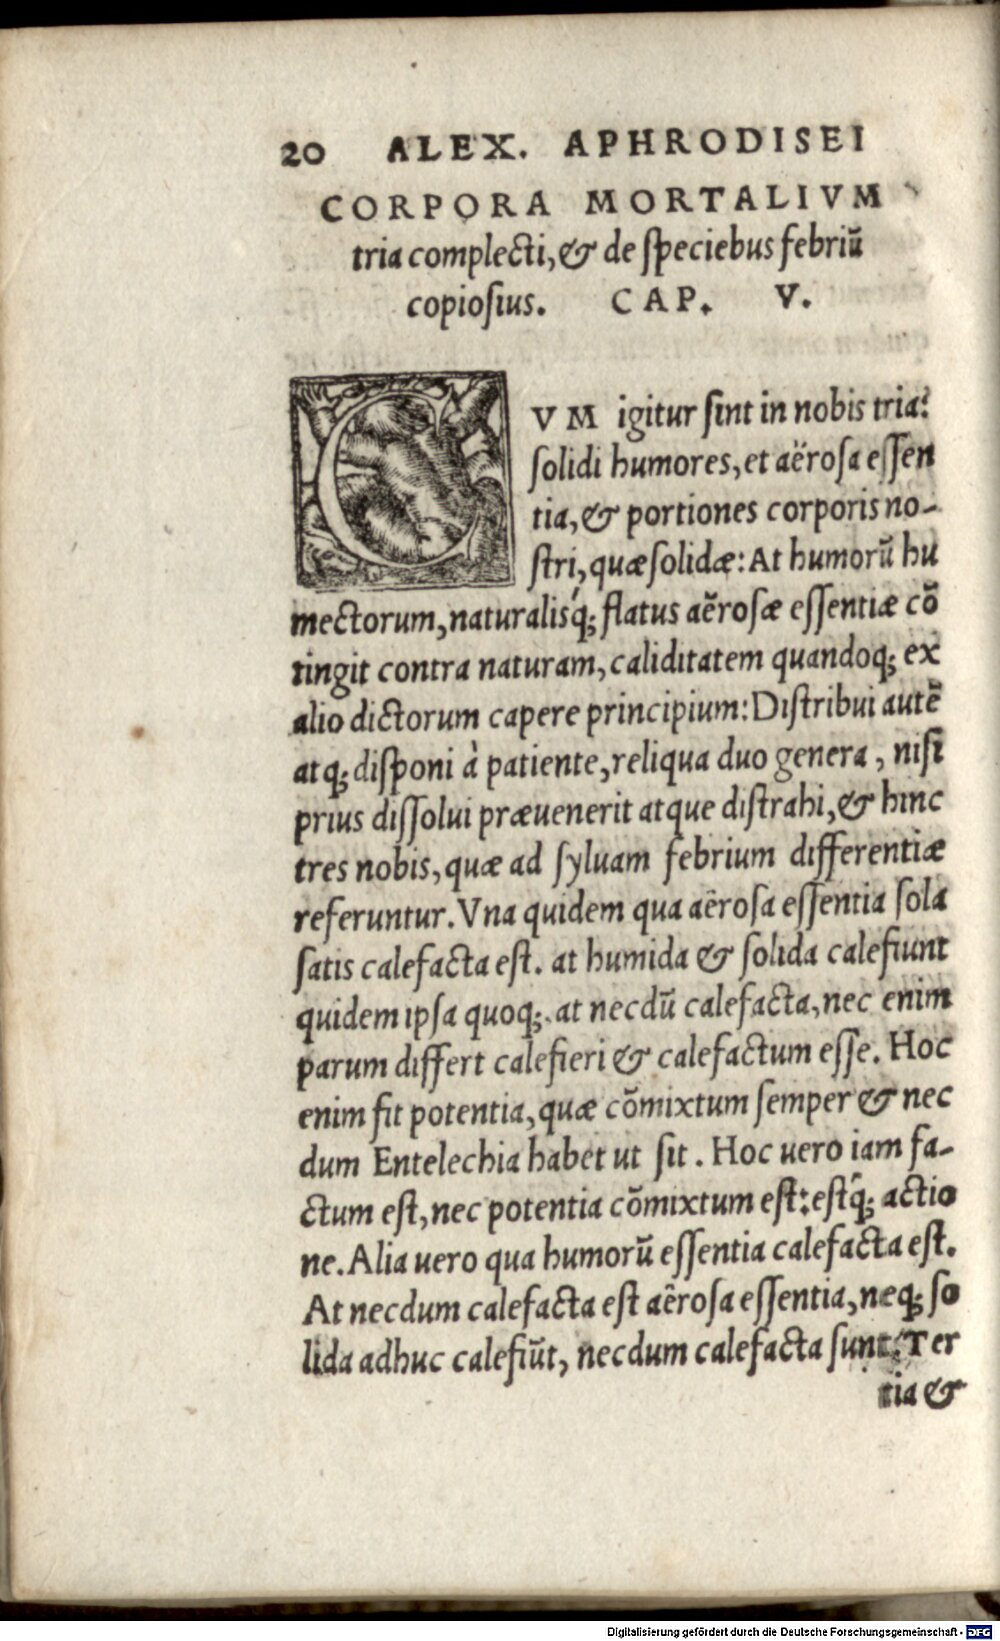 20 ALEX. APHRODISEI
CORPORA MORTALIVM
tria complecti, & de ſpeciebus febriũ
copioſius. CAP. V.
CVM igitur ſint in nobis tria:
ſolidi humores, et aëroſa eſſen
tia, & portiones corporis no-
ſtri, quæ ſolidæ: At humorũ hu
mectorum, naturalisq́; flatus aëroſæ eſſentiæ cõ
tingit contra naturam, caliditatem quandoq; ex
alio dictorum capere principium: Diſtribui autẽ
atq; diſponi à patiente, reliqua duo genera, niſi
prius diſſolui præuenerit atque diſtrahi, & hinc
tres nobis, quæ ad ſyluam febrium differentiæ
referuntur. Vna quidem qua aëroſa eſſentia ſola
ſatis calefacta eſt. at humida & ſolida calefiunt
quidem ipſa quoq; at necdũ calefacta, nec enim
parum differt calefieri & calefactum eſſe. Hoc
enim fit potentia, quæ cõmixtum ſemper & nec
dum Entelechia habet ut ſit. Hoc uero iam fa-
ctum eſt, nec potentia cõmixtum eſt: eſtq́; actio
ne. Alia uero qua humorũ eſſentia calefacta eſt.
At necdum calefacta eſt aëroſa eſſentia, neq; ſo
lida adhuc calefiũt, necdum calefacta ſunt: Ter
tia &
Digitalisierung gefördert durch die Deutsche Forschungsgemeinschaft - DFG